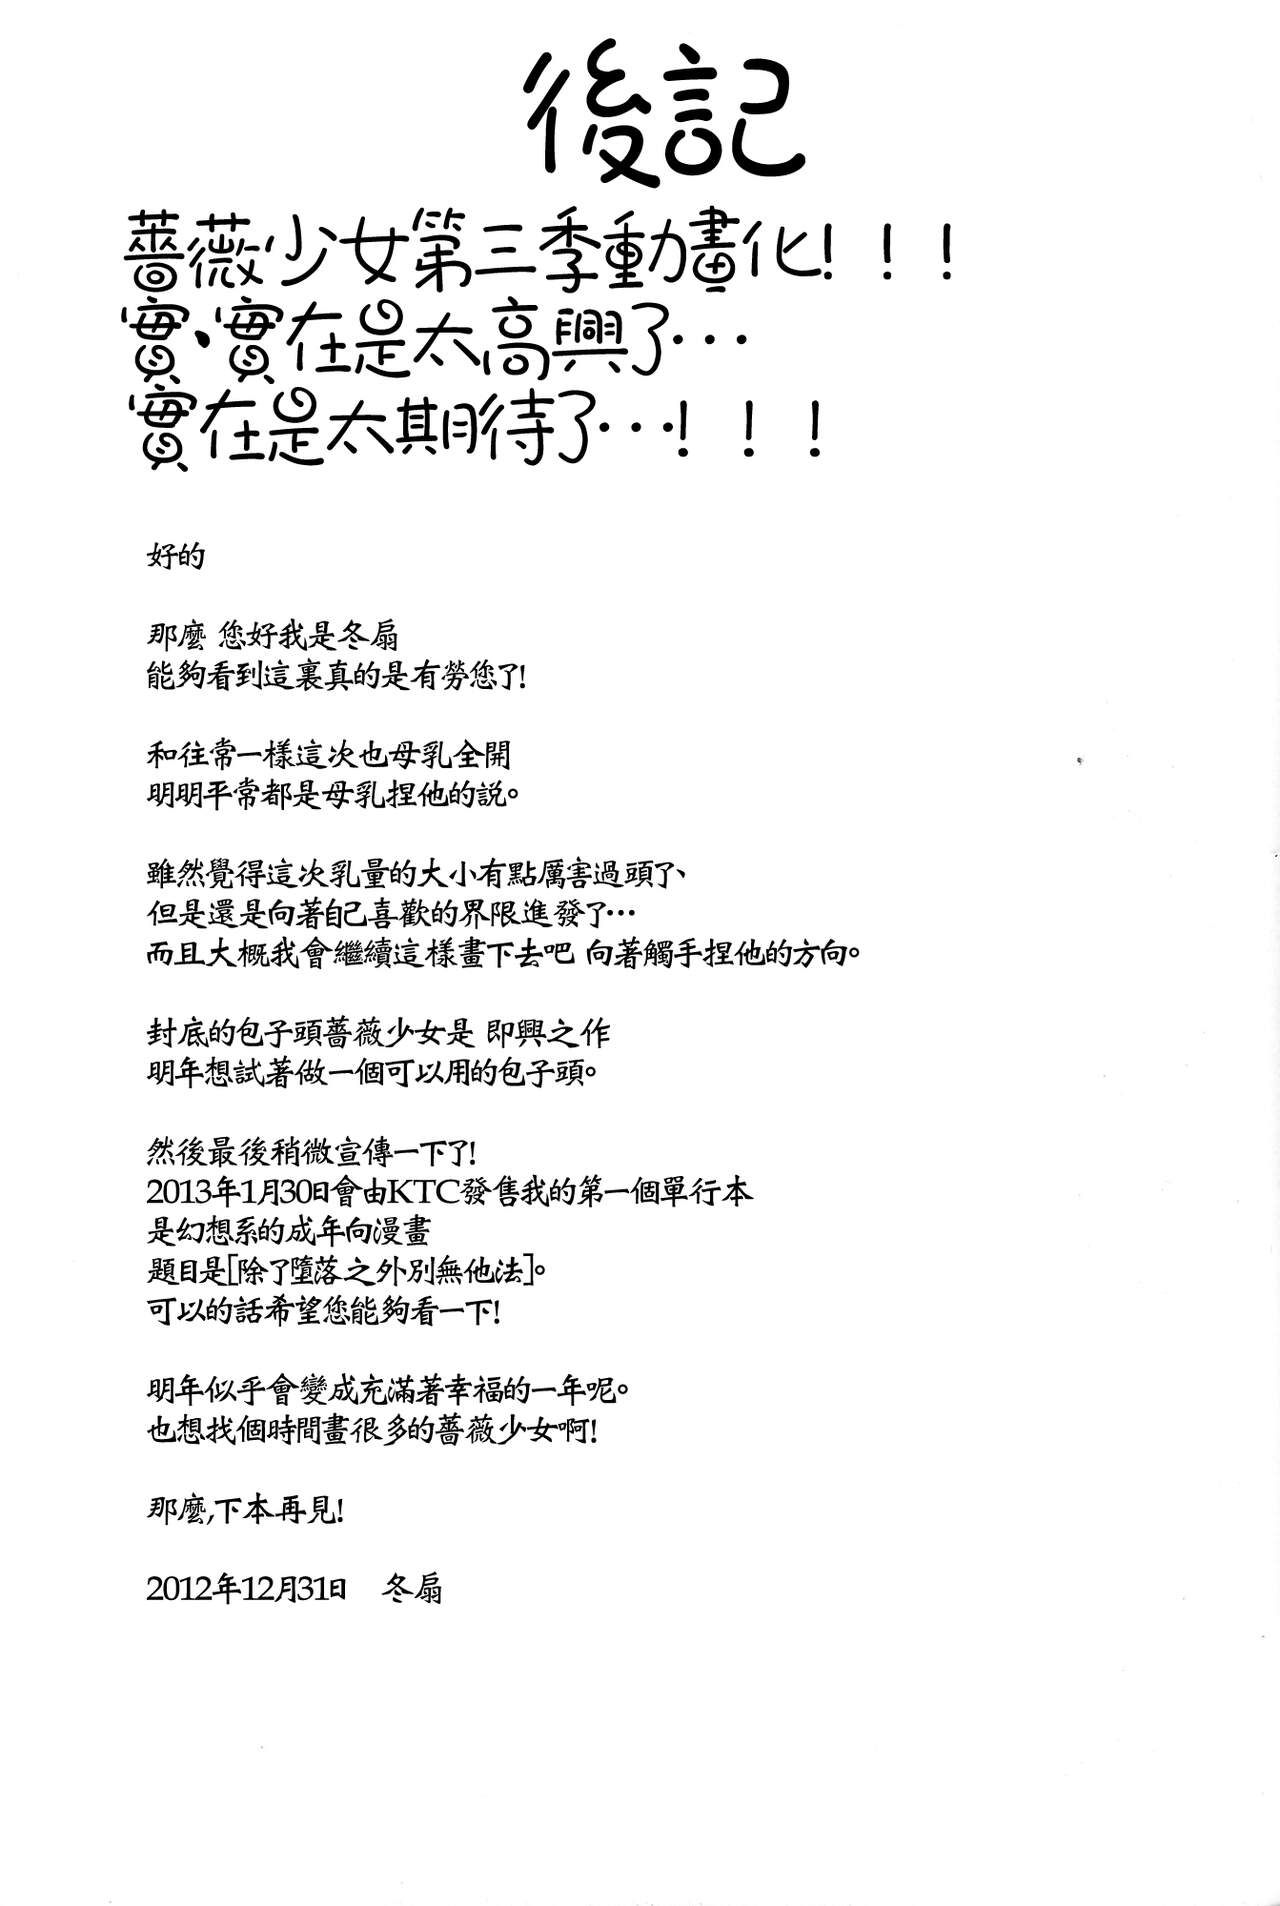 後記
薔薇少女第三季動畫化！！！
實、實在是太高興了…
實在是太期待了…！！！
好的
那麼 您好我是冬扇
能夠看到這裏真的是有勞您了!
和往常一樣這次也母乳全開
明明平常都是母乳捏他的説。
雖然覺得這次乳量的大小有點厲害過頭了、
但是還是向著自己喜歡的界限進發了…
而且大概我會繼續這樣畫下去吧 向著觸手捏他的方向。
封底的包子頭薔薇少女是 即興之作
明年想試著做一個可以用的包子頭。
然後最後稍微宣傳一下了!
2013年1月30日會由KTC發售我的第一個單行本
是幻想系的成年向漫畫
題目是[除了墮落之外別無他法]。
可以的話希望您能夠看一下!
明年似乎會變成充滿著幸福的一年呢。
也想找個時間畫很多的薔薇少女啊!
那麼,下本再見!
2012年12月31日　冬扇